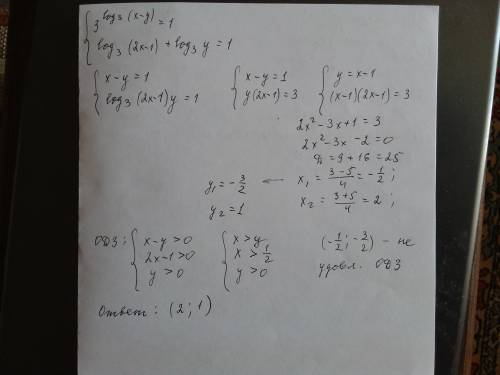 { 3^{log₃(x-y)} = 1
log₃(2x-1) + log₃ y = 1
{ x-y=1
log₃(2x-1)y = 1
{ x-y=1
y(2x-1)=3
{ y=x-1
(x-1)(2x-1)=3
2x²-3x+1=3
2x²-3x-2=0
D=9+16=25
y₁=-3/2 ← x₁=(3-5)/4=-1/2;
y₂=1 x₂=(3+5)/4=2;
ОДЗ: { x-y>0
2x-1>0
y>0
{ x>y
x>1/2
y>0
(-1/2; -3/2) - не
удовл. ОДЗ
Ответ: (2; 1)